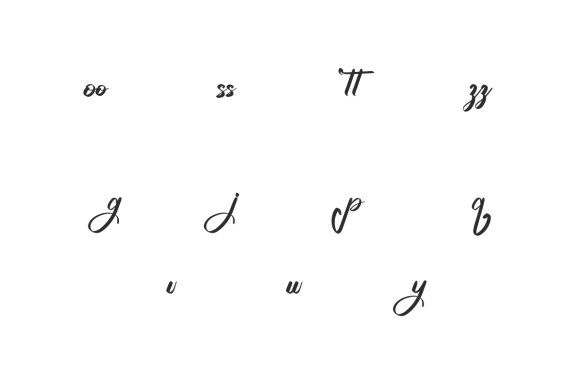 oo ss tt zz
g j p q
v w y